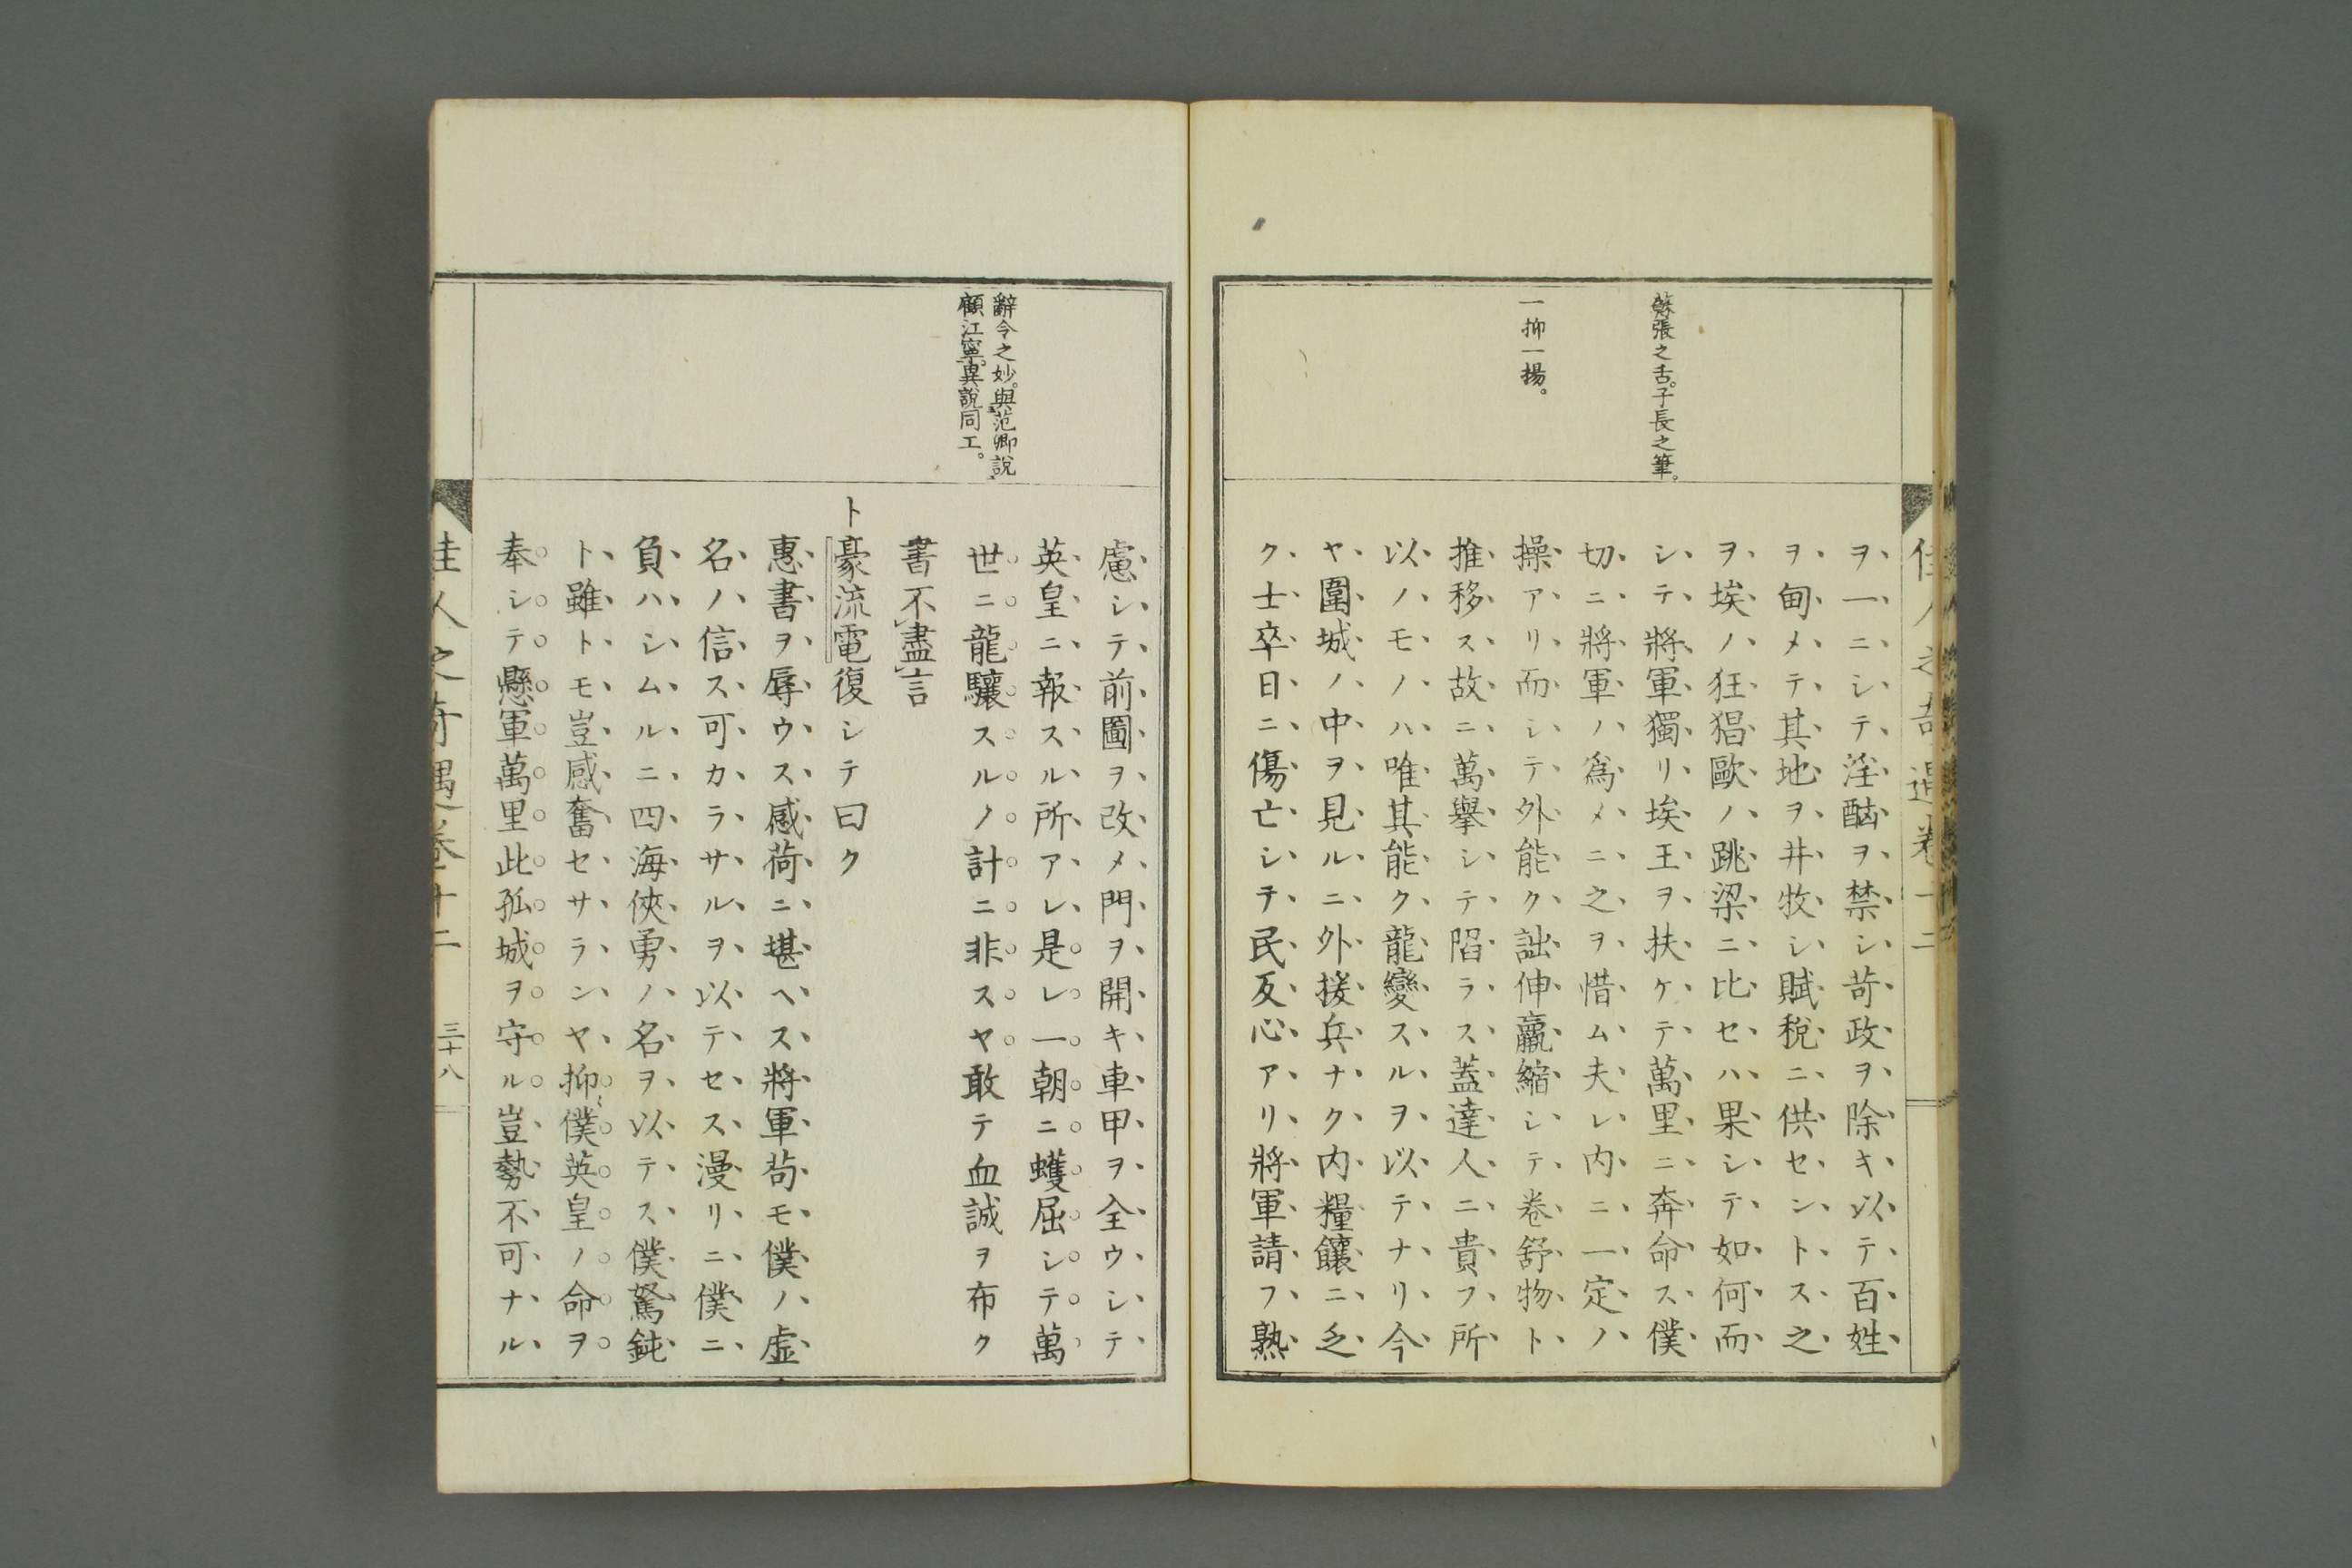 佳人之奇遇卷十二
蘇張之舌。子長之筆。
一抑一揚。
ヲ一ニシテ淫酗ヲ禁シ苛政ヲ除キ以テ百姓
ヲ甸メテ其地ヲ井牧シ賦稅ニ供セントス之
ヲ埃ノ狂猖歐ノ跳梁ニ比セハ果シテ如何而
シテ將軍獨リ埃王ヲ扶ケテ萬里ニ奔命ス僕
切ニ將軍ノ爲メニ之ヲ惜ム夫レ内ニ一定ノ
操アリ而シテ外能ク詘伸羸縮シテ卷舒物ト
推移ス故ニ萬擧シテ陷ラス蓋達人ニ貴フ所
以ノモノハ唯其能ク龍變スルヲ以テナリ今
ヤ圍城ノ中ヲ見ルニ外援兵ナク内糧饟ニ乏
ク士卒日ニ傷亡シテ民反心アリ將軍請フ熟
辭令之妙。與范卿說
顧江寧。異說同工。
慮シテ前圖ヲ改メ門ヲ開キ車甲ヲ全ウシテ
英皇ニ報スル所アレ是レ一朝ニ蠖屈シテ萬
世ニ龍驤スルノ計ニ非スヤ敢テ血誠ヲ布ク
書不盡言
ト豪流電復シテ曰ク
惠書ヲ辱ウス感荷ニ堪ヘス將軍苟モ僕ノ虛
名ノ信ス可カラサルヲ以テセス漫リニ僕ニ
負ハシムルニ四海俠勇ノ名ヲ以テス僕駑鈍
ト雖トモ豈感奮セサランヤ抑〻僕英皇ノ命ヲ
奉シテ懸軍萬里此孤城ヲ守ル豈勢不可ナル
佳人之奇遇卷十二 三十八